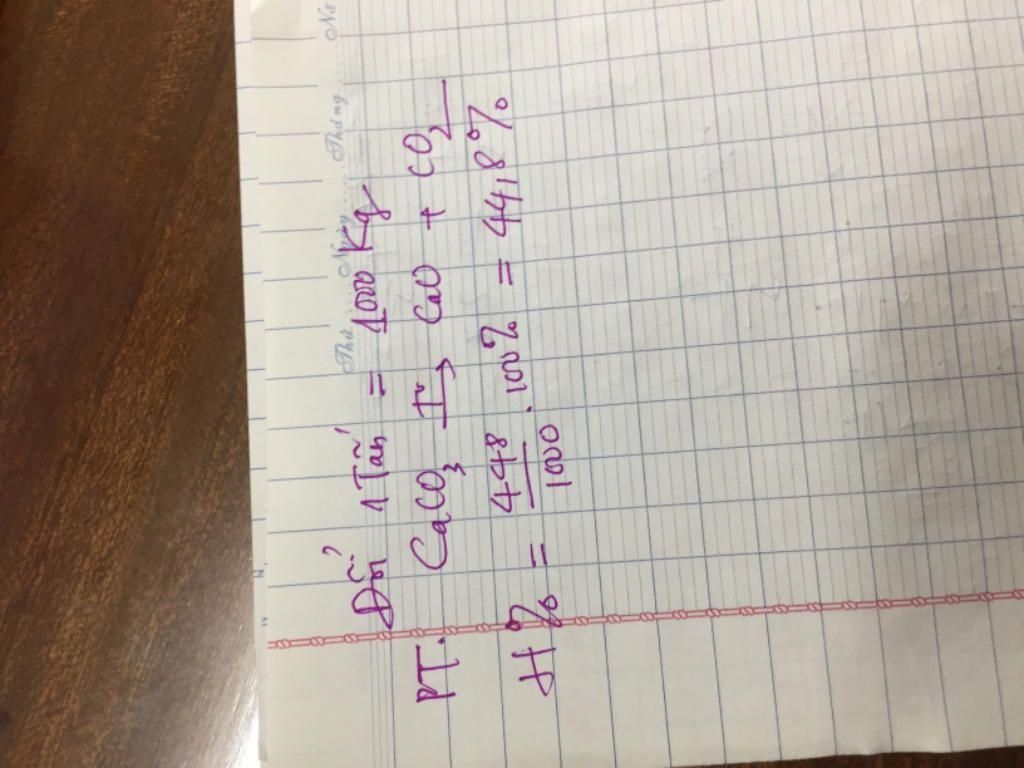 Thứ ........ Ngày ........ Tháng ........ Nă
Đổi 1 Tấn = 1000 Kg
PT. CaCO₃ —t°→ CaO + CO₂
H% = 448/1000 . 100% = 44,8%